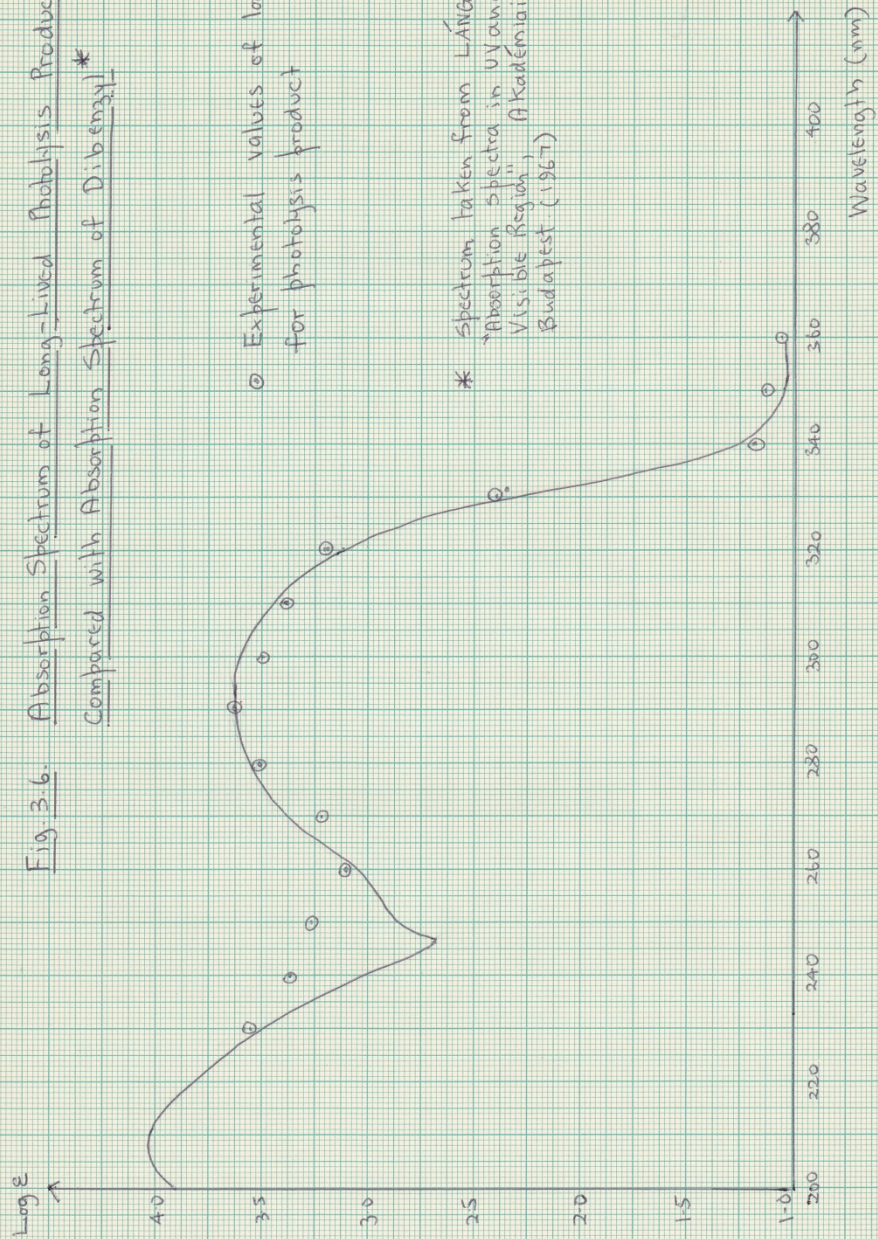 Fig. 3.6. Absorption Spectrum of Long-Lived Photolysis Produc
Compared with Absorption Spectrum of Dibenzyl*
Log ε
⊙ Experimental values of lo
for photolysis product
* Spectrum taken from LÁNG
"Absorption Spectra in UV an
Visible Region", Akadémiai
Budapest (1967)
4.0
3.5
3.0
2.5
2.0
1.5
1.0
200 220 240 260 280 300 320 340 360 380 400
Wavelength (nm)